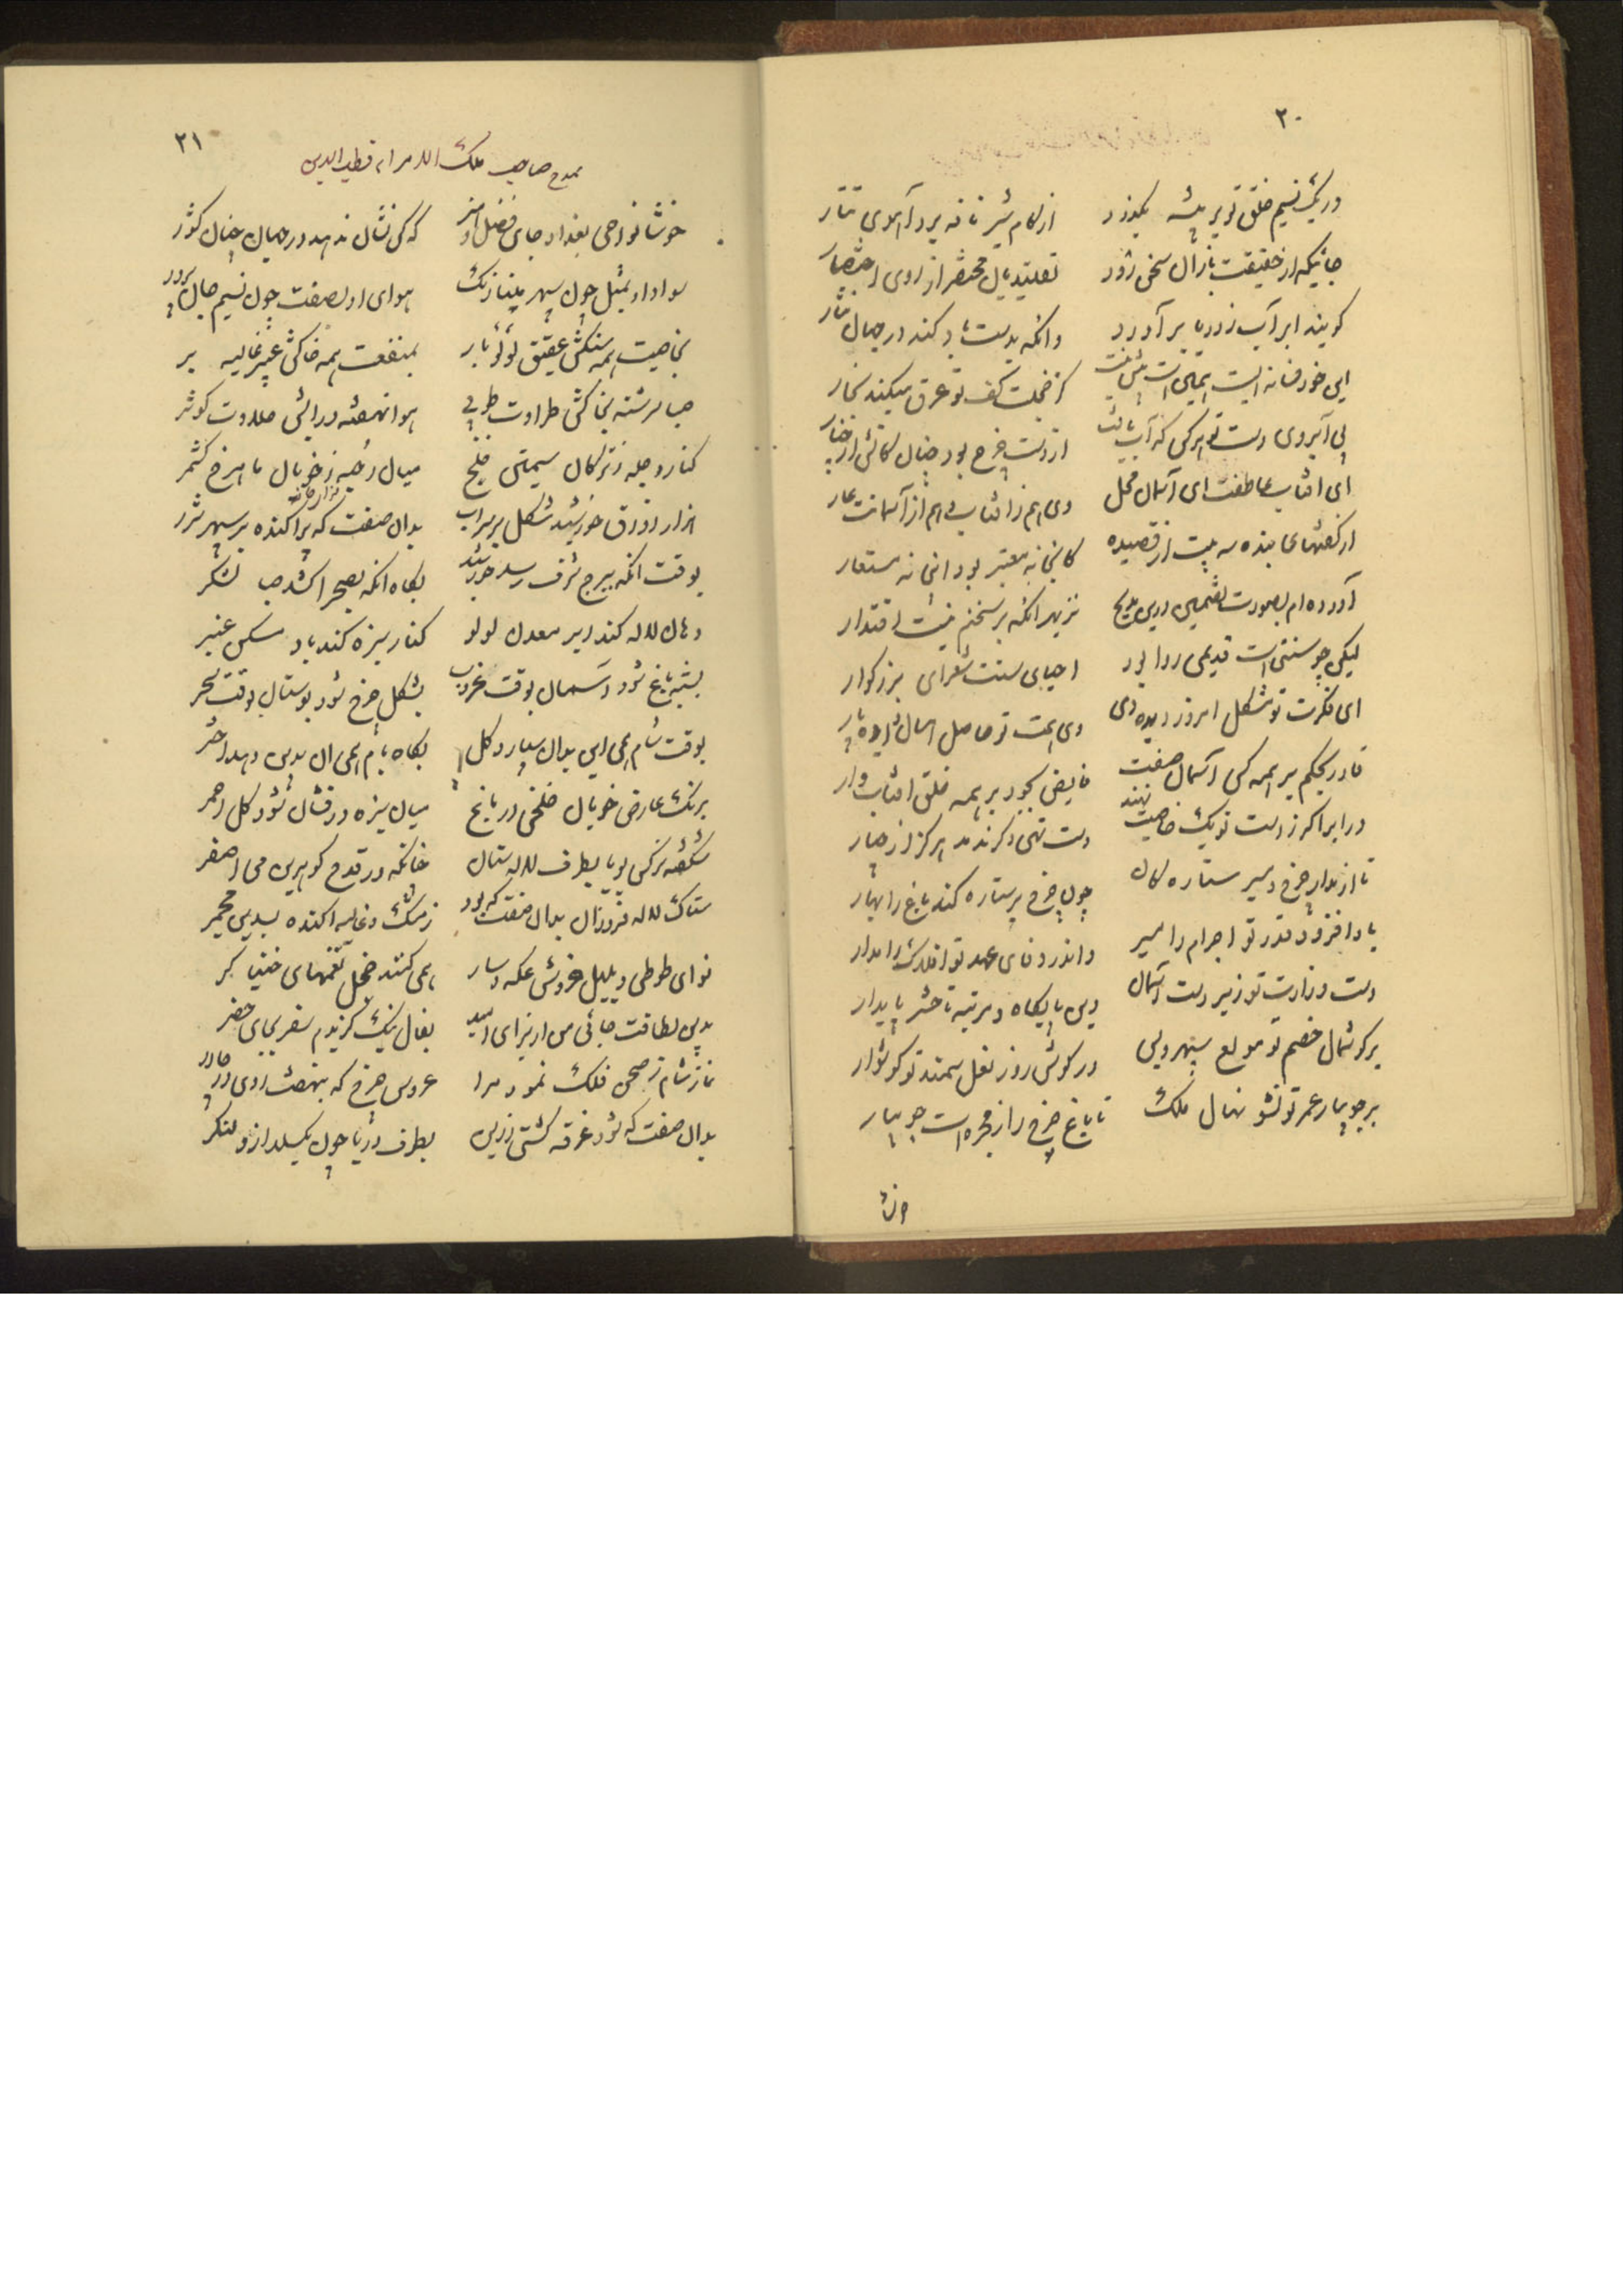 ۲۰
در یک نسیم خلق تو بر بیشه بگذرد از کام شیر نافه برد آهوی تتار
جائیکه از حقیقت باران سخن رود تقلیدیان مختصر از روی اختصار
گویند ابر آب ز دریا برآورد وانگه بدست باد کند در جهان نثار
این خود فسانه ایست همین است کز خجلت کف تو عرق میکند بخار
بی آبروی دست تو هر کس که آب یافت از دست چرخ بود چنان کاتش از چنار
ای آفتاب عاطفت ای آسمان محل وی هم ز آفتاب و هم از آسمانت عار
از گفتهای بنده سه بیت از قصیده کانجا نه معتبر بود اینجا نه مستعار
آورده ام بصورت تضمین درین مدیح نز بهر آنکه بر سخنم نیست اقتدار
لیکن چو سنتی است قدیمی روا بود احیای سنت شعرای بزرگوار
ای فکرت تو مشکل امروز دیده دی وی همت تو حاصل امسال داده پار
قادر بحکم بر همه کس آسمان صفت فایض بجود بر همه خلق آفتاب وار
در ابر اگر ز دست تو یک خاصیت نهند دست تهی دگر ندمد هرگز از چنار
تا از مدار چرخ و مسیر ستارگان چون چرخ پر ستاره کند باغ را بهار
بادا فزوده قدر تو اجرام را مسیر واندر وفای عهد تو افلاک را مدار
دست وزارت تو زبر دست آسمان وین پایگاه و مرتبه تا حشر پایدار
بر گوشمال خصم تو مولع سپهر و در گوش روز نعل سمند تو گوشوار
بر جویبار عمر تو نشو نهال ملک تا باغ چرخ را ز مجره است جویبار
خوشا
۲۱
بمدح صاحب ملک الامراء قطب الدین
خوشا نواحی بغداد جای فضل و هنر که کس نشان ندهد در جهان چنان کشور
سواد او بمثل چون سپهر مینا رنگ هوای او بصفت چون نسیم جان پرور
بخاصیت همه سنگش عقیق لولو بار بمنفعت همه خاکش عبیر غالیه بر
صبا سرشته بخاکش طراوت طوبی هوا نهفته در آبش حلاوت کوثر
کنار دجله ز ترکان سیمتن خلخ میان رحبه ز خوبان ماهرخ کشمر
هزار زورق خورشید شکل بر سر آب بدان صفت که پراکنده بر سپهر شرر
بوقت آنکه ببرج شرف رسد خورشید بگاه آنکه بصحرا کشد صبا لشکر
دهان لاله کند ابر معدن لولو کنار سبزه کند باد مسکن عنبر
بشبه باغ شود آسمان بوقت غروب بشکل چرخ شود بوستان بوقت سحر
بوقت شام همی این بدان سپارد گل بگاه بام همی آن بدین دهد اختر
برنگ عارض خوبان خلخی در باغ میان سبزه درفشان شود گل احمر
شکفته نرگس بویا بطرف لاله ستان چنانکه در قدح گوهرین می اصفر
ستاک لاله فروزان بدان صفت که بود ز مشک و غالیه آکنده بسدین مجمر
نوای طوطی و بلبل خروش عکه و سار همی کنند خجل نغمهای خنیاگر
بدین لطافت جائی من از برای امید بفال نیک گزیدم سفر بجای حضر
نماز شام ز صحن فلک نمود مرا عروس چرخ که بنهفت روی در چادر
بدان صفت که شود غرقه کشتی زرین بطرف دریا چون بگسلد ازو لنگر